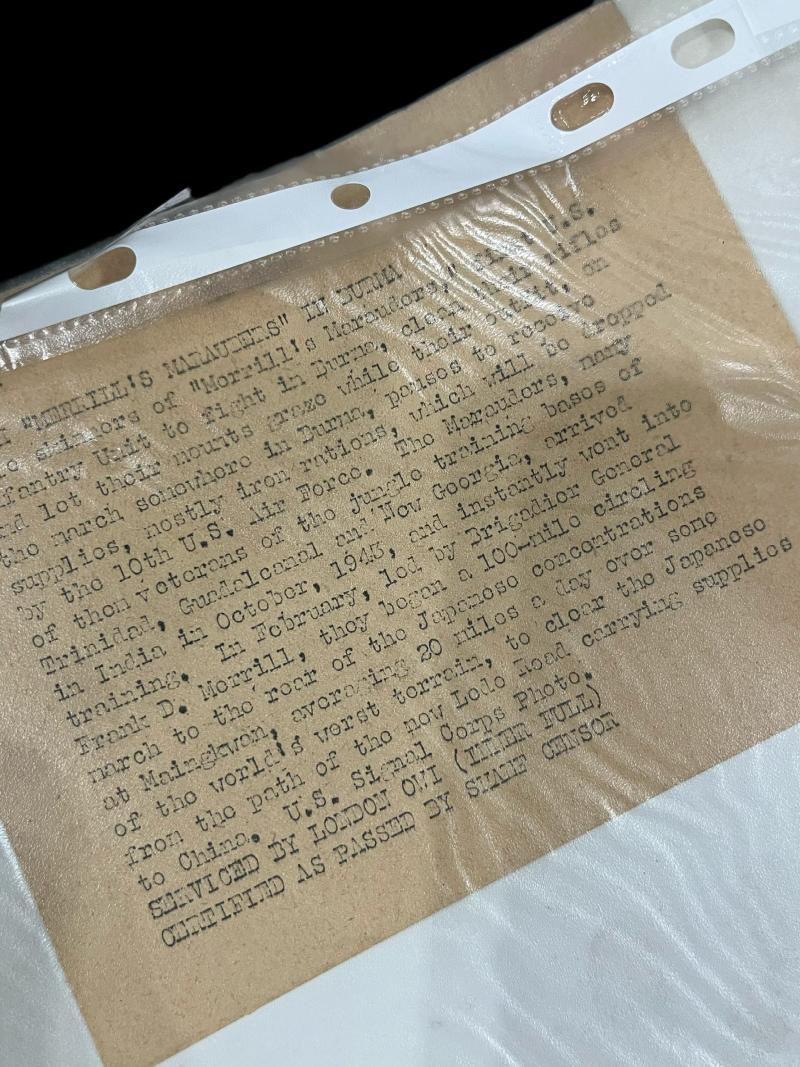 "MERRILL'S MARAUDERS" IN BURMA
skinners of "Merrill's Marauders," first U.S.
fantry Unit to Fight in Burma, clean their rifles
nd let their mounts graze while their outfit, on
the march somewhere in Burma, pauses to receive
supplies, mostly iron rations, which will be dropped
by the 10th U.S. Air Force. The Marauders, many
of them veterans of the jungle training bases of
Trinidad, Guadalcanal and New Georgia, arrived
in India in October, 1943, and instantly went into
training. In February, led by Brigadier General
Frank D. Merrill, they began a 100-mile circling
march to the rear of the Japanese concentrations
at Maingkwan, averaging 20 miles a day over some
of the world's worst terrain, to clear the Japanese
from the path of the new Ledo Road carrying supplies
to China. U.S. Signal Corps Photo.
SERVICED BY LONDON OWI FULL)
CERTIFIED AS PASSED BY SHAEF CENSOR